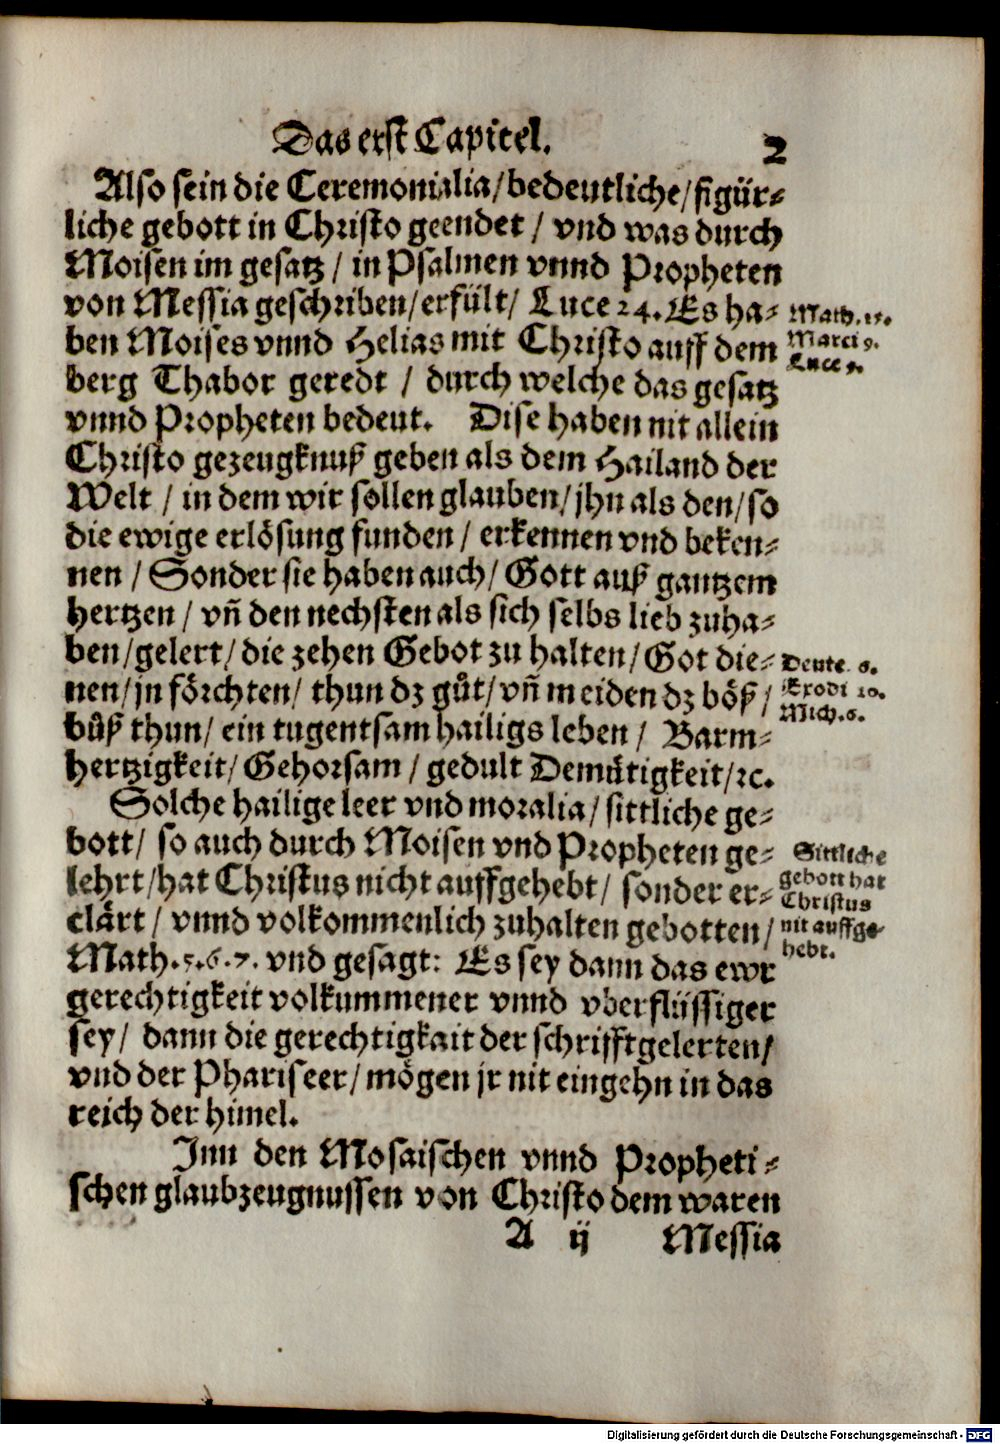 Das erst Capitel. 2
Also sein die Ceremonialia/bedeutliche/figür⸗
liche gebott in Christo geendet / vnd was durch
Moisen im gesatz / in Psalmen vnnd Propheten
von Messia geschriben/erfült/ Luce 24. Es ha⸗
ben Moises vnnd Helias mit Christo auff dem
berg Thabor geredt / durch welche das gesatz
vnnd Propheten bedeut. Dise haben nit allein
Christo gezeugknuß geben als dem Hailand der
Welt / in dem wir sollen glauben/jhn als den/so
die ewige erlösung funden / erkennen vnd beken⸗
nen / Sonder sie haben auch/ Gott auß gantzem
hertzen / vñ den nechsten als sich selbs lieb zuha⸗
ben/gelert/die zehen Gebot zu halten/Got die⸗
nen/jn förchten/ thun dz gůt/vñ meiden dz böß/
bůß thun/ ein tugentsam hailigs leben/ Barm⸗
hertzigkeit/Gehorsam / gedult Demütigkeit/ꝛc.
Solche hailige leer vnd moralia/sittliche ge⸗
bott/ so auch durch Moisen vnd Propheten ge⸗
lehrt/hat Christus nicht auffgehebt/ sonder er⸗
clärt / vnnd volkommenlich zuhalten gebotten/
Math.5.6.7. vnd gesagt: Es sey dann das ewr
gerechtigkeit volkummener vnnd vberflüssiger
sey/ dann die gerechtigkait der schrifftgelerten/
vnd der Phariseer/mögen jr nit eingehn in das
reich der himel.
Inn den Mosaischen vnnd Propheti⸗
schen glaubzeugnussen von Christo dem waren
A ij Messia
Math. 17.
Marci 9.
Luce 9.
Deute. 6.
Exodi 20.
Mich. 6.
Sittliche
gebott hat
Christus
nit auffge⸗
hebt.
Digitalisierung gefördert durch die Deutsche Forschungsgemeinschaft - DFG